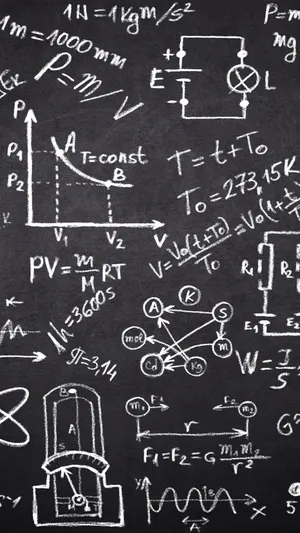 1N = 1 kg m/s²
1m = 1000 mm
P = m
mg
P = m/V
E
L
+
-
P
P₁
A
T = const
P₂
B
V₁
V₂
V
T = t + T₀
T₀ = 273,15K
V = V₀(t+T₀)/T₀ = V₀(1+
PV = m/M RT
1h = 3600s
π=3,14
R₁
R₂
E₁
E₂
A
K
S
mol
M
Cd
Kg
W = J/S
5
B
A
S
m₁
F₁
F₂
m₂
r
F₁ = F₂ = G m₁m₂/r²
G
Y
B
X
A
5